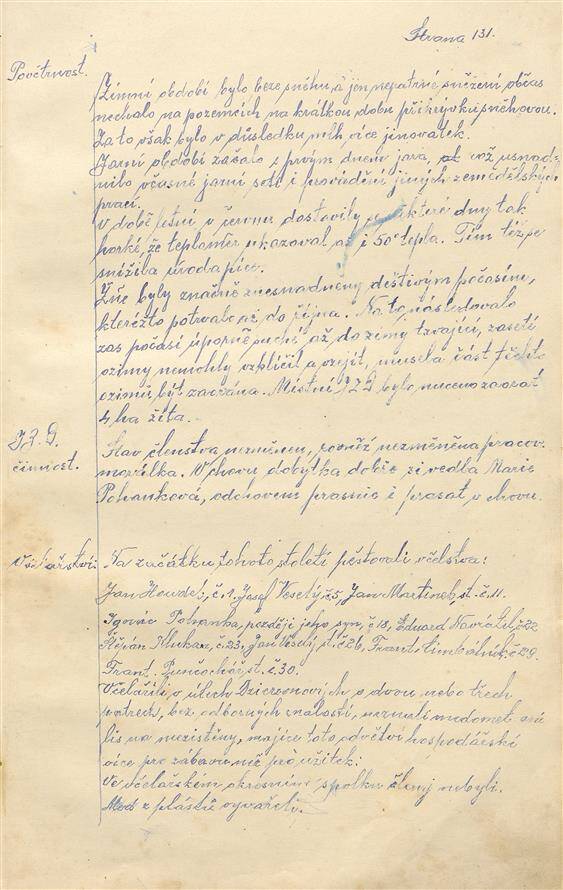 Strana 131.
Povětrnost.
Zimní období bylo beze sněhu, a jen nepatrné snížení občas
nechalo na pozemcích na krátkou dobu přikrývku sněhovou.
Za to však bylo v důsledku mlh více jinovatek.
Jarní období začalo s prvým dnem jara, což usnad-
nilo včasné jarní setí i provádění jiných zemědělských
prací.
V době letní v červnu dostavily se některé dny tak
horké, že teploměr ukazoval až i 50° tepla. Tím též se
snížila úroda píce.
Žně byly značně znesnadněny deštivým počasím,
kteréžto potrvalo až do října. Na to následovalo
zas počasí úporně suché až do zimy trvající, zasetí
ozimy nemohly vzklíčit a vzejít, musela část těchto
ozimů být zaorána. Místní JZD bylo nuceno zaorat
4 ha žita.
JZD.
činnost.
Stav členstva nezměněn, rovněž nezměněna pracov.
morálka. V chovu dobytka dobře si vedla Marie
Pohanková, odchovem prasnic i prasat v chovu.
Včelařství:
Na začátku tohoto století pěstovali včelstva:
Jan Houdek, č. 1. Josef Veselý č 5, Jan Martinek, st. č. 11.
Ignác Pohanka, později jeho syn, č 18, Eduard Navrátil, č 22
Štěpán Klukan, č. 23, Jan Veselý, st. č 26, Frant. Cimbálník, č 29.
Frant. Punčochář, st. č. 30.
Včelařili v úlech Dzierzonových o dvou nebo třech
patrech, bez odborných znalostí, neznali medomet ani
lis na mezistěny, majíce toto odvětví hospodářské
více pro zábavu než pro užitek.
Ve včelařském okresním spolku členy nebyli.
Med z plástů vyvařeli.